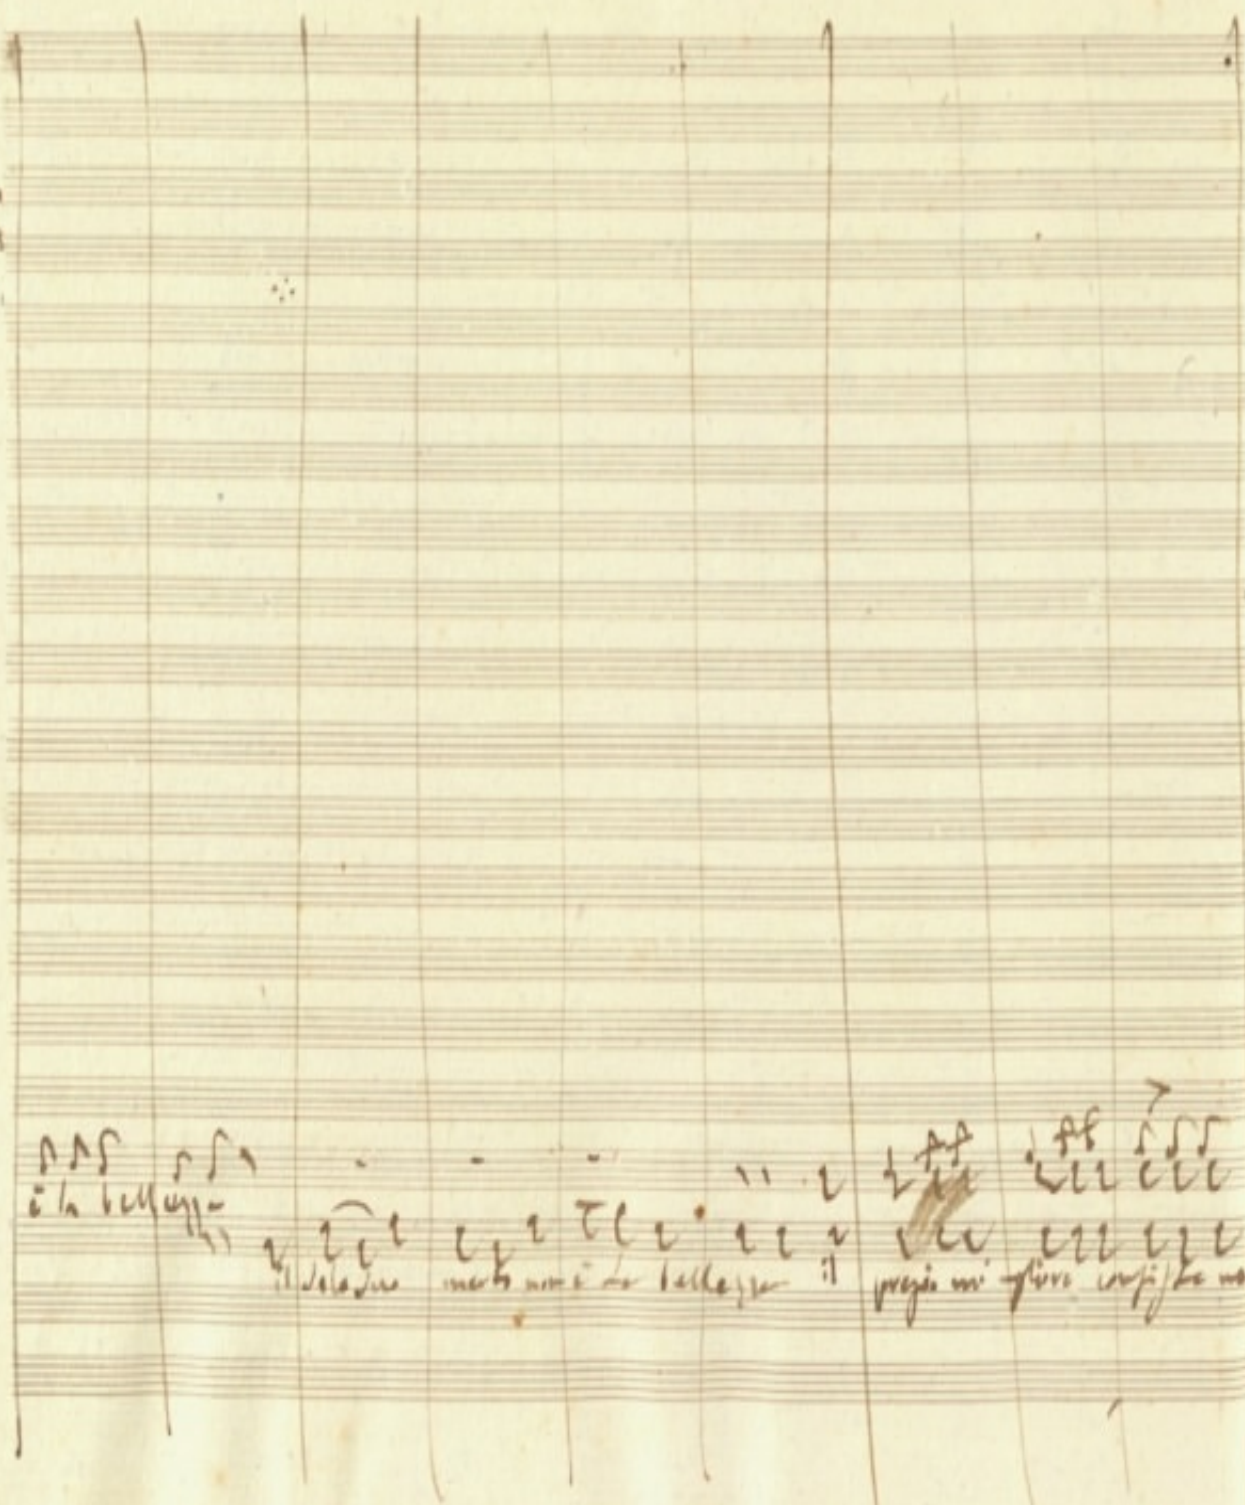 è la bellezza
il solo suo merto non è la bellezza il pregio migliore consiste